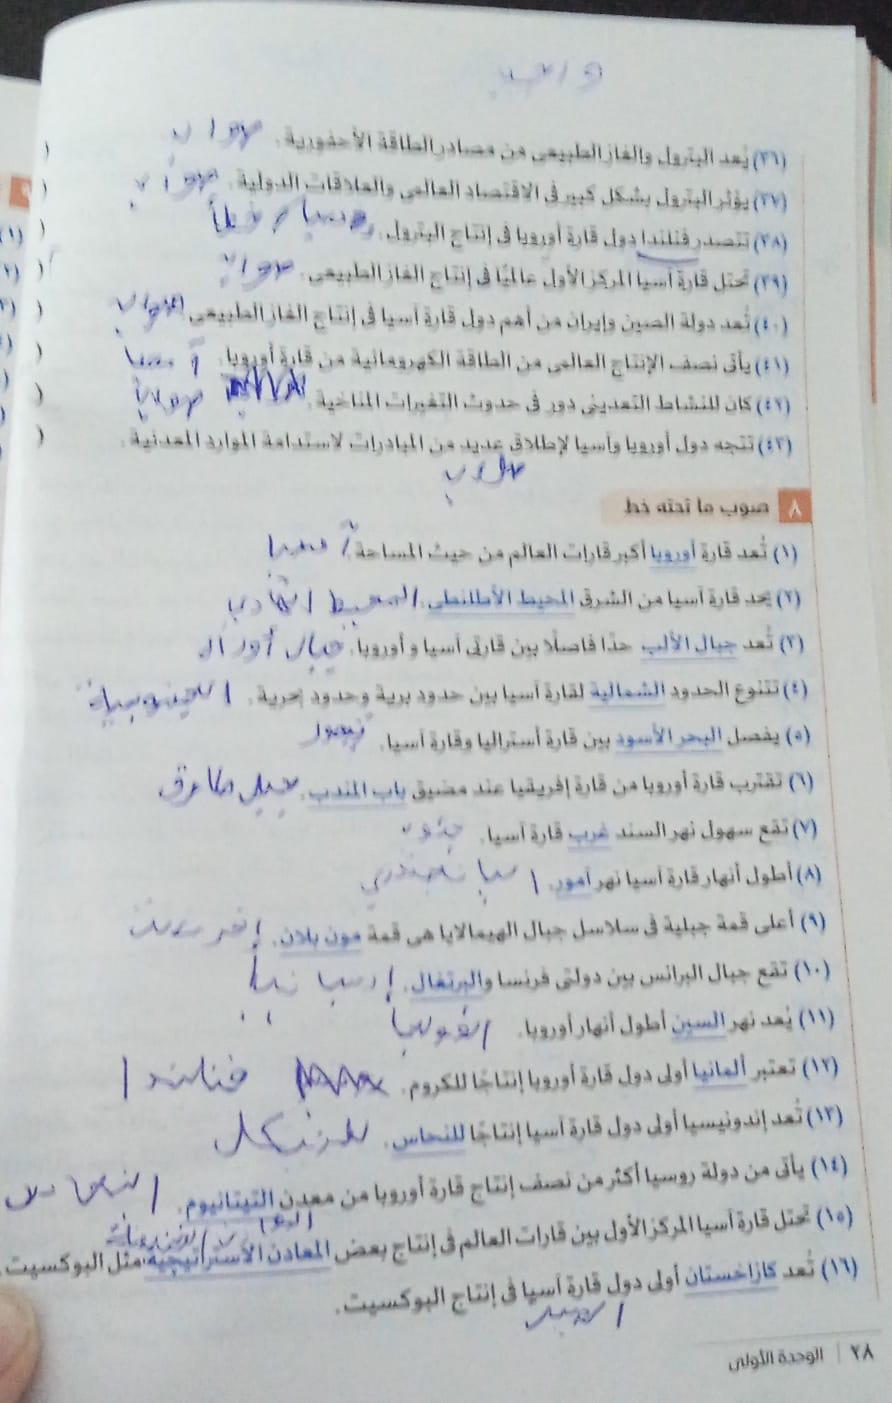 واجب
(٣٦) يُعد البترول والغاز الطبيعى من مصادر الطاقة الأحفورية. صواب (
(٣٧) يؤثر البترول بشكل كبير فى الاقتصاد العالمى والعلاقات الدولية. صواب (
(٣٨) تتصدر فنلندا دول قارة أوروبا فى إنتاج البترول. روسيا / خطأ (
(٣٩) تحتل قارة آسيا المركز الأول عالميًا فى إنتاج الغاز الطبيعى. صواب (
(٤٠) تُعد دولة الصين وإيران من أهم دول قارة آسيا فى إنتاج الغاز الطبيعى. (
(٤١) يأتى نصف الإنتاج العالمى من الطاقة الكهرومائية من قارة أوروبا. آسيا (
(٤٢) كان للنشاط التعدينى دور فى حدوث التغيرات المناخية. صواب (
(٤٣) تتجه دول أوروبا وآسيا لإطلاق عديد من المبادرات لاستدامة الموارد المعدنية. (
صواب
٨ صوب ما تحته خط
(١) تُعد قارة أوروبا أكبر قارات العالم من حيث المساحة. آسيا
(٢) يحد قارة آسيا من الشرق المحيط الأطلنطى. المحيط الهادي
(٣) تُعد جبال الألب حدًا فاصلًا بين قارتى آسيا و أوروبا. جبال أورال
(٤) تتنوع الحدود الشمالية لقارة آسيا بين حدود برية وحدود بحرية. الجنوبية
(٥) يفصل البحر الأسود بين قارة أستراليا وقارة آسيا. تيمور
(٦) تقترب قارة أوروبا من قارة إفريقيا عند مضيق باب المندب. جبل طارق
(٧) تقع سهول نهر السند غرب قارة آسيا. جنوب
(٨) أطول أنهار قارة آسيا نهر آمور. اليانجتسي
(٩) أعلى قمة جبلية فى سلاسل جبال الهيمالايا هى قمة مون بلان. إفرست
(١٠) تقع جبال البرانس بين دولتى فرنسا والبرتغال. إسبانيا
(١١) يُعد نهر السين أطول أنهار أوروبا. الفولجا
(١٢) تعتبر ألمانيا أولى دول قارة أوروبا إنتاجًا للكروم. فنلندا
(١٣) تُعد إندونيسيا أولى دول قارة آسيا إنتاجًا للنحاس. للنيكل
(١٤) يأتى من دولة روسيا أكثر من نصف إنتاج قارة أوروبا من معدن التيتانيوم. النحاس
(١٥) تحتل قارة آسيا المركز الأول بين قارات العالم فى إنتاج بعض المعادن الأستراتيجية مثل البوكسيت.
(١٦) تُعد كازاخستان أولى دول قارة آسيا فى إنتاج البوكسيت.
الصين
٢٨ | الوحدة الأولى